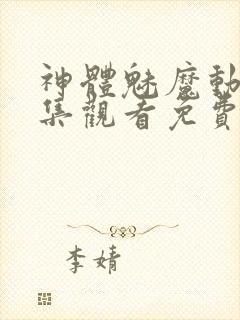 神體魅魔動
集觀看免費
李婧